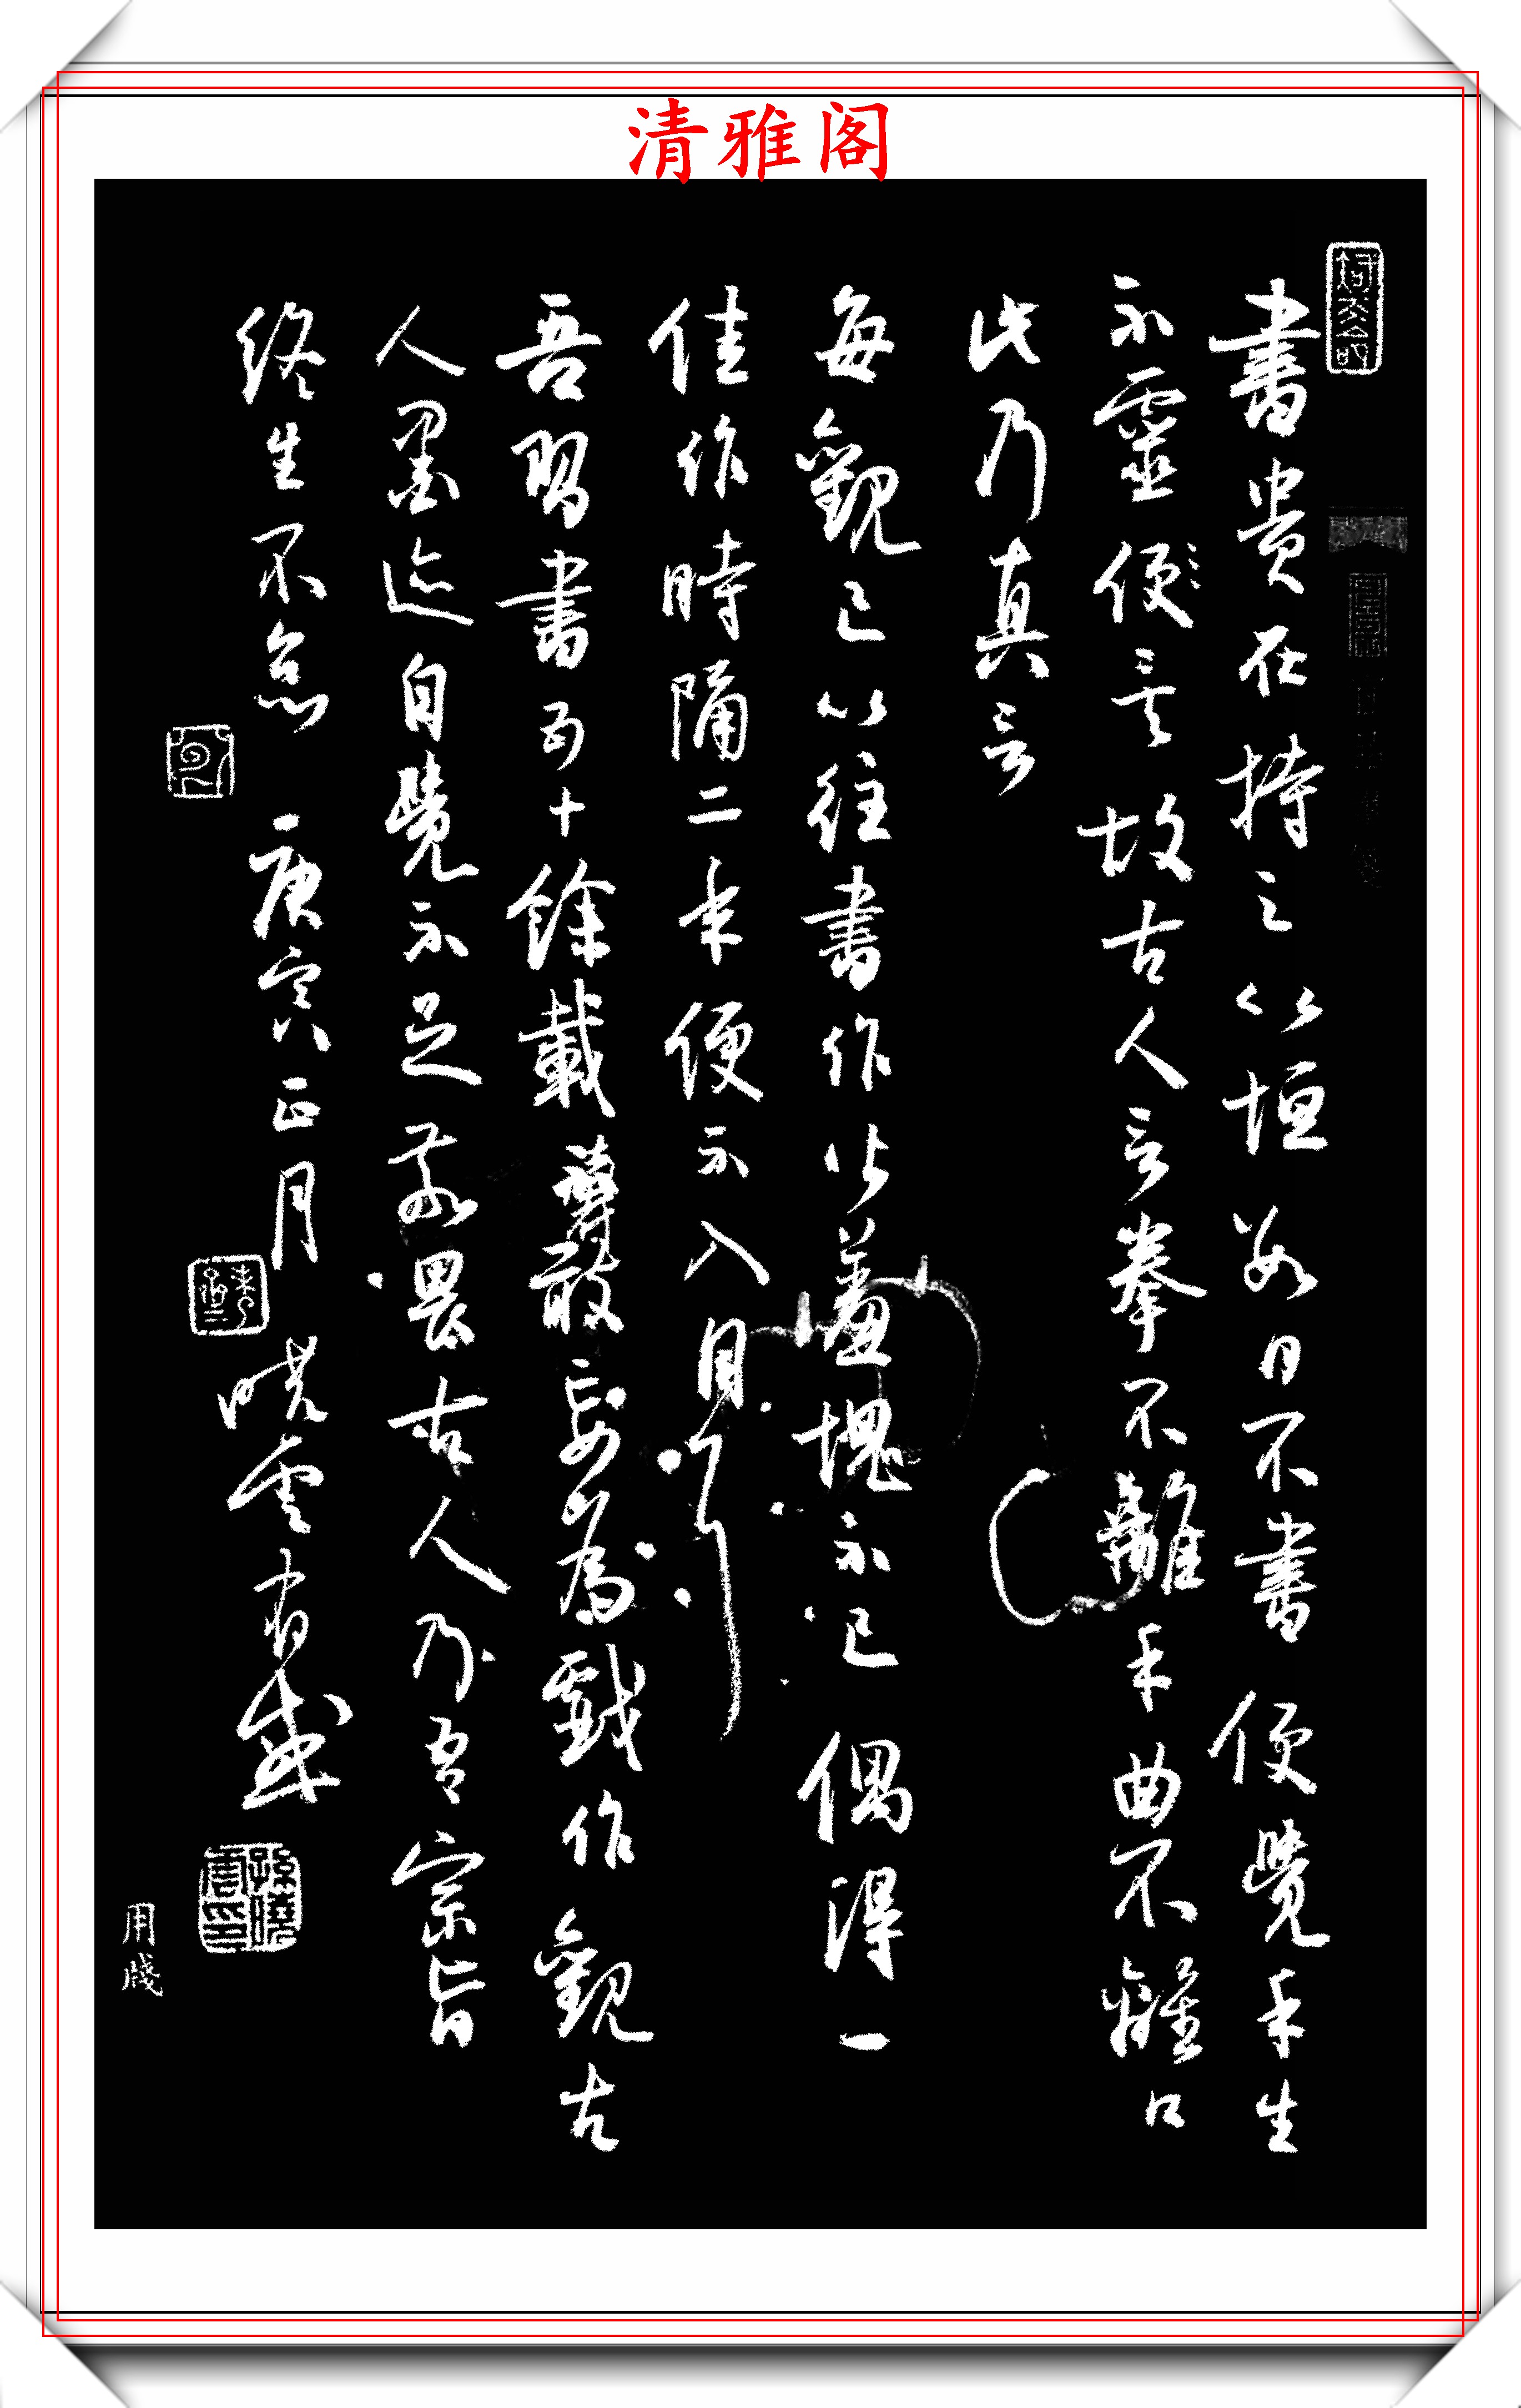 清雅阁
書貴在持之以恒數日不書便覺手生
不靈便矣故古人言拳不離手曲不離口
此乃真言
每觀已以往書作必羞愧不已偶得一
佳作時隔二年便不入目
吾習書五十餘載敢妄為戲作觀古
人墨迹自覺不足敬畏古人乃吾宗旨
终生不怠 庚寅正月 曉雲有感
孫曉雲印
用牋